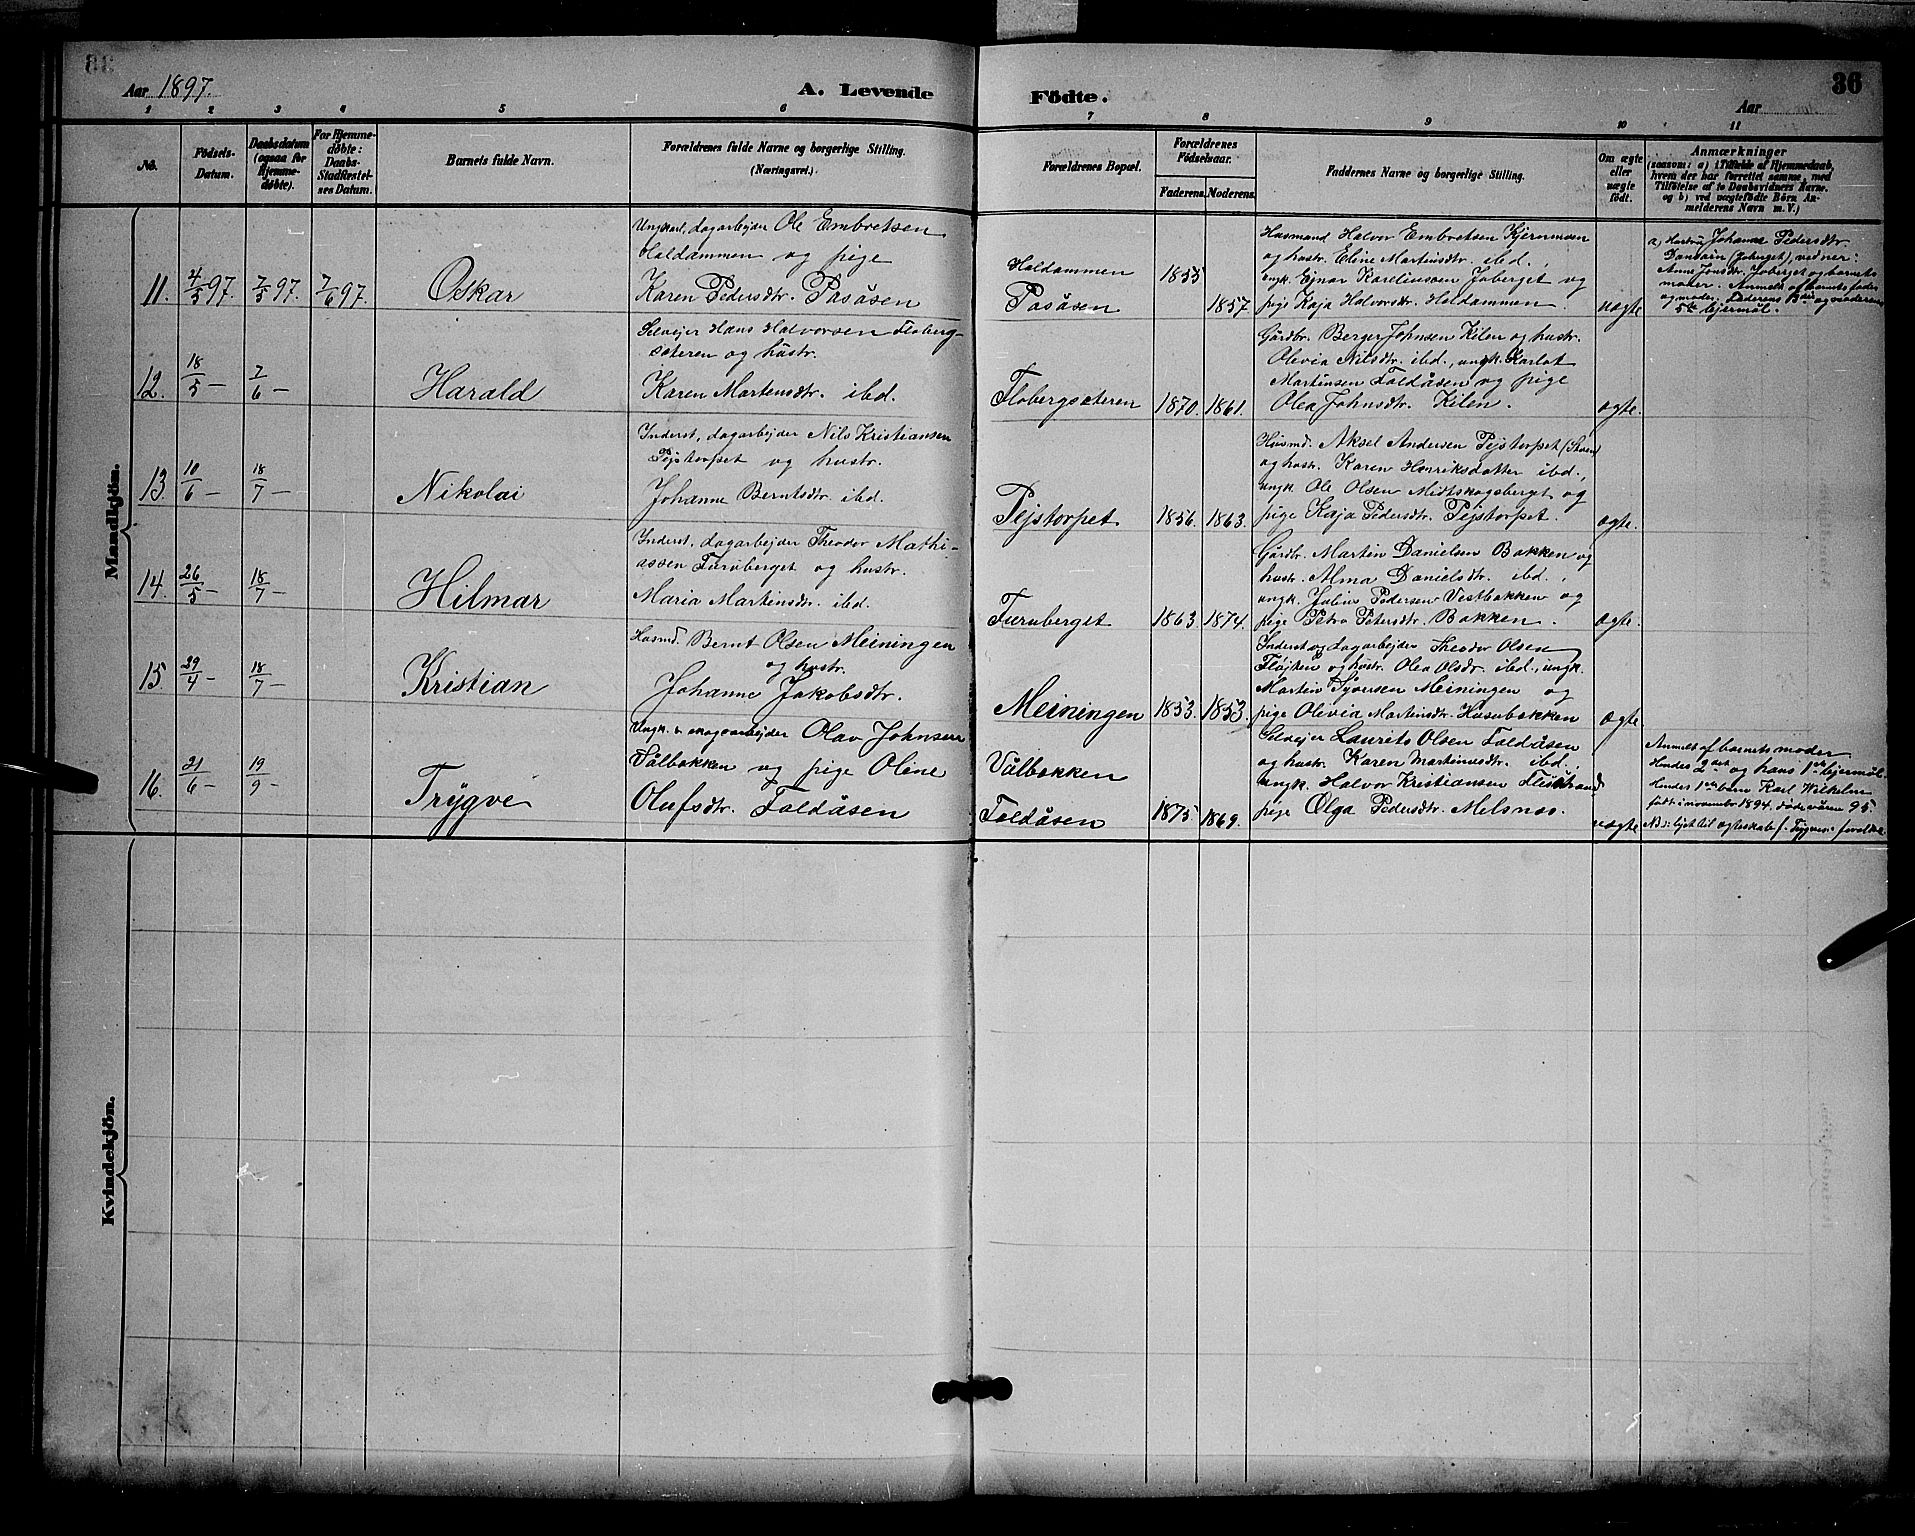 Aar 1897.
A. Levende Födte.
Aar
36
1 2 3 4 5 6 7 8 9 10 11
No.
Födsels-Datum.
Daabsdatum (ogsaa for Hjemmedöbte).
For Hjemmedöbte: Daabs-Stadfæstelses Datum.
Barnets fulde Navn.
Forældrenes fulde Navne og borgerlige Stilling.
(Næringsvei.)
Forældrenes Bopæl.
Forældrenes Födselsaar.
Faderens. Moderens.
Faddernes Navne og borgerlige Stilling.
Om ægte eller uægte födt.
Anmærkninger
(saasom: a) i Tilfælde af Hjemmedaab, hvem der har forrettet samme, med Tilföielse af to Daabsvidners Navne, og b) ved uægtefödte Börn Anmelderens Navn m. V.)
Mandkjön.
11. 4/5 97. 7/5 97. 7/6 97.
Oskar
Ungkarl, dagarbejder Ole Embretsen
Holdammen og pige
Karen Pedersdtr. Pasåsen
Holdammen
Pasåsen
1855
1857.
Husmand Halvor Embretsen Kjernmoen
og hustr. Eline Martinsdtr. ibd.,
ungk. Ejnar Kareliussen Joberget og
pige Kaja Halvorsdtr. Holdammen.
uægte
a) Hustru Johanne Pedersdtr
vidner:
Anne Jonsdtr. Joberget og barnets
moder. Anmeldt af barnets fader
og moder. Faderens og moderens
5te lejermål.
12. 18/5 - 7/6 -
Harald
Selvejer Hans Halvorsen Floberg-
sæteren og hustr.
Karen Martensdtr. ibd.
Flobergsæteren
1870. 1861.
Gårdbr. Berger Johnsen Kilen og hustr.
Olevia Nilsdtr. ibd., ungk. Karlot
Martinsen Foldåsen og pige
Olea Johnsdtr. Kilen.
ægte.
13. 10/6 - 18/7 -
Nikolai
Inderst, dagarbejder Nils Kristiansen
Pejstorpet og hustr.
Johanne Berntsdtr. ibd.
Pejstorpet
1856. 1863.
Husmd. Aksel Andersen Pejstorpet
og hustr. Karen Henriksdatter ibd.,
ungk. Ole Olsen Midtskogsberget og
pige Kaja Pedersdtr. Pejstorpet.
ægte.
14. 26/5 - 18/7 -
Hilmar
Inderst, dagarbejder Theodor Mathi-
assen Furuberget og hustr.
Maria Martinsdtr. ibd.
Furuberget
1863. 1874.
Gårdbr. Martin Danielsen Bakken og
hustr. Alma Danielsdtr. ibd.,
ungk. Julius Pedersen Vestbakken og
pige Petra Petersdtr. Bakken.
ægte.
15. 29/4 - 18/7 -
Kristian
Husmd. Bernt Olsen Meiningen
og hustr.
Johanne Jakobsdtr.
Meiningen
1853. 1853.
Inderst og dagarbejder Theodor Olsen
Fløjten og hustr. Olea Olsdtr. ibd., ungk.
Martin Syversen Meiningen og
pige Olivia Martensdtr. Husubakken
ægte
16. 21/6 - 19/9 -
Trygve
Ungk. & skogsarbejder Olav Johnsen
Vålbakken og pige Oline
Olufsdtr. Foldåsen
Vålbakken
Foldåsen
1875. 1869.
Selvejer Laurits Olsen Foldåsen
og hustr. Karen Martinusdtr. ibd.,
ungk. Halvor Kristiansen
pige Olga Pedersdtr. Melsnes.
uægte
Anmelt af barnets moder
Hendes 2det og hans 1ste lejermål.
Hendes 1ste barn Karl Wilhelm
født i november 1894, døde våren 95
Kvindekjön.